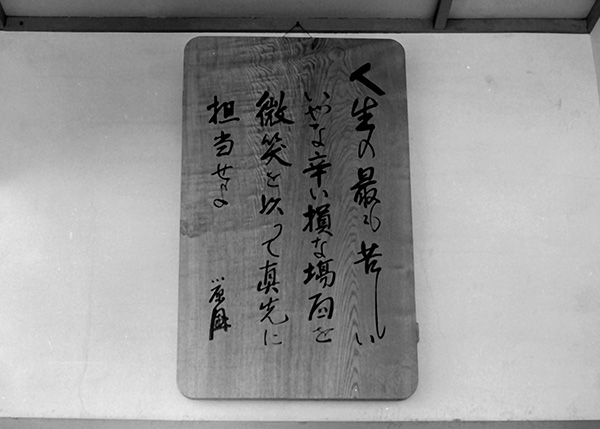 人生の最も苦しい
いやな辛い損な場面を
微笑を以って真先に
担当せよ